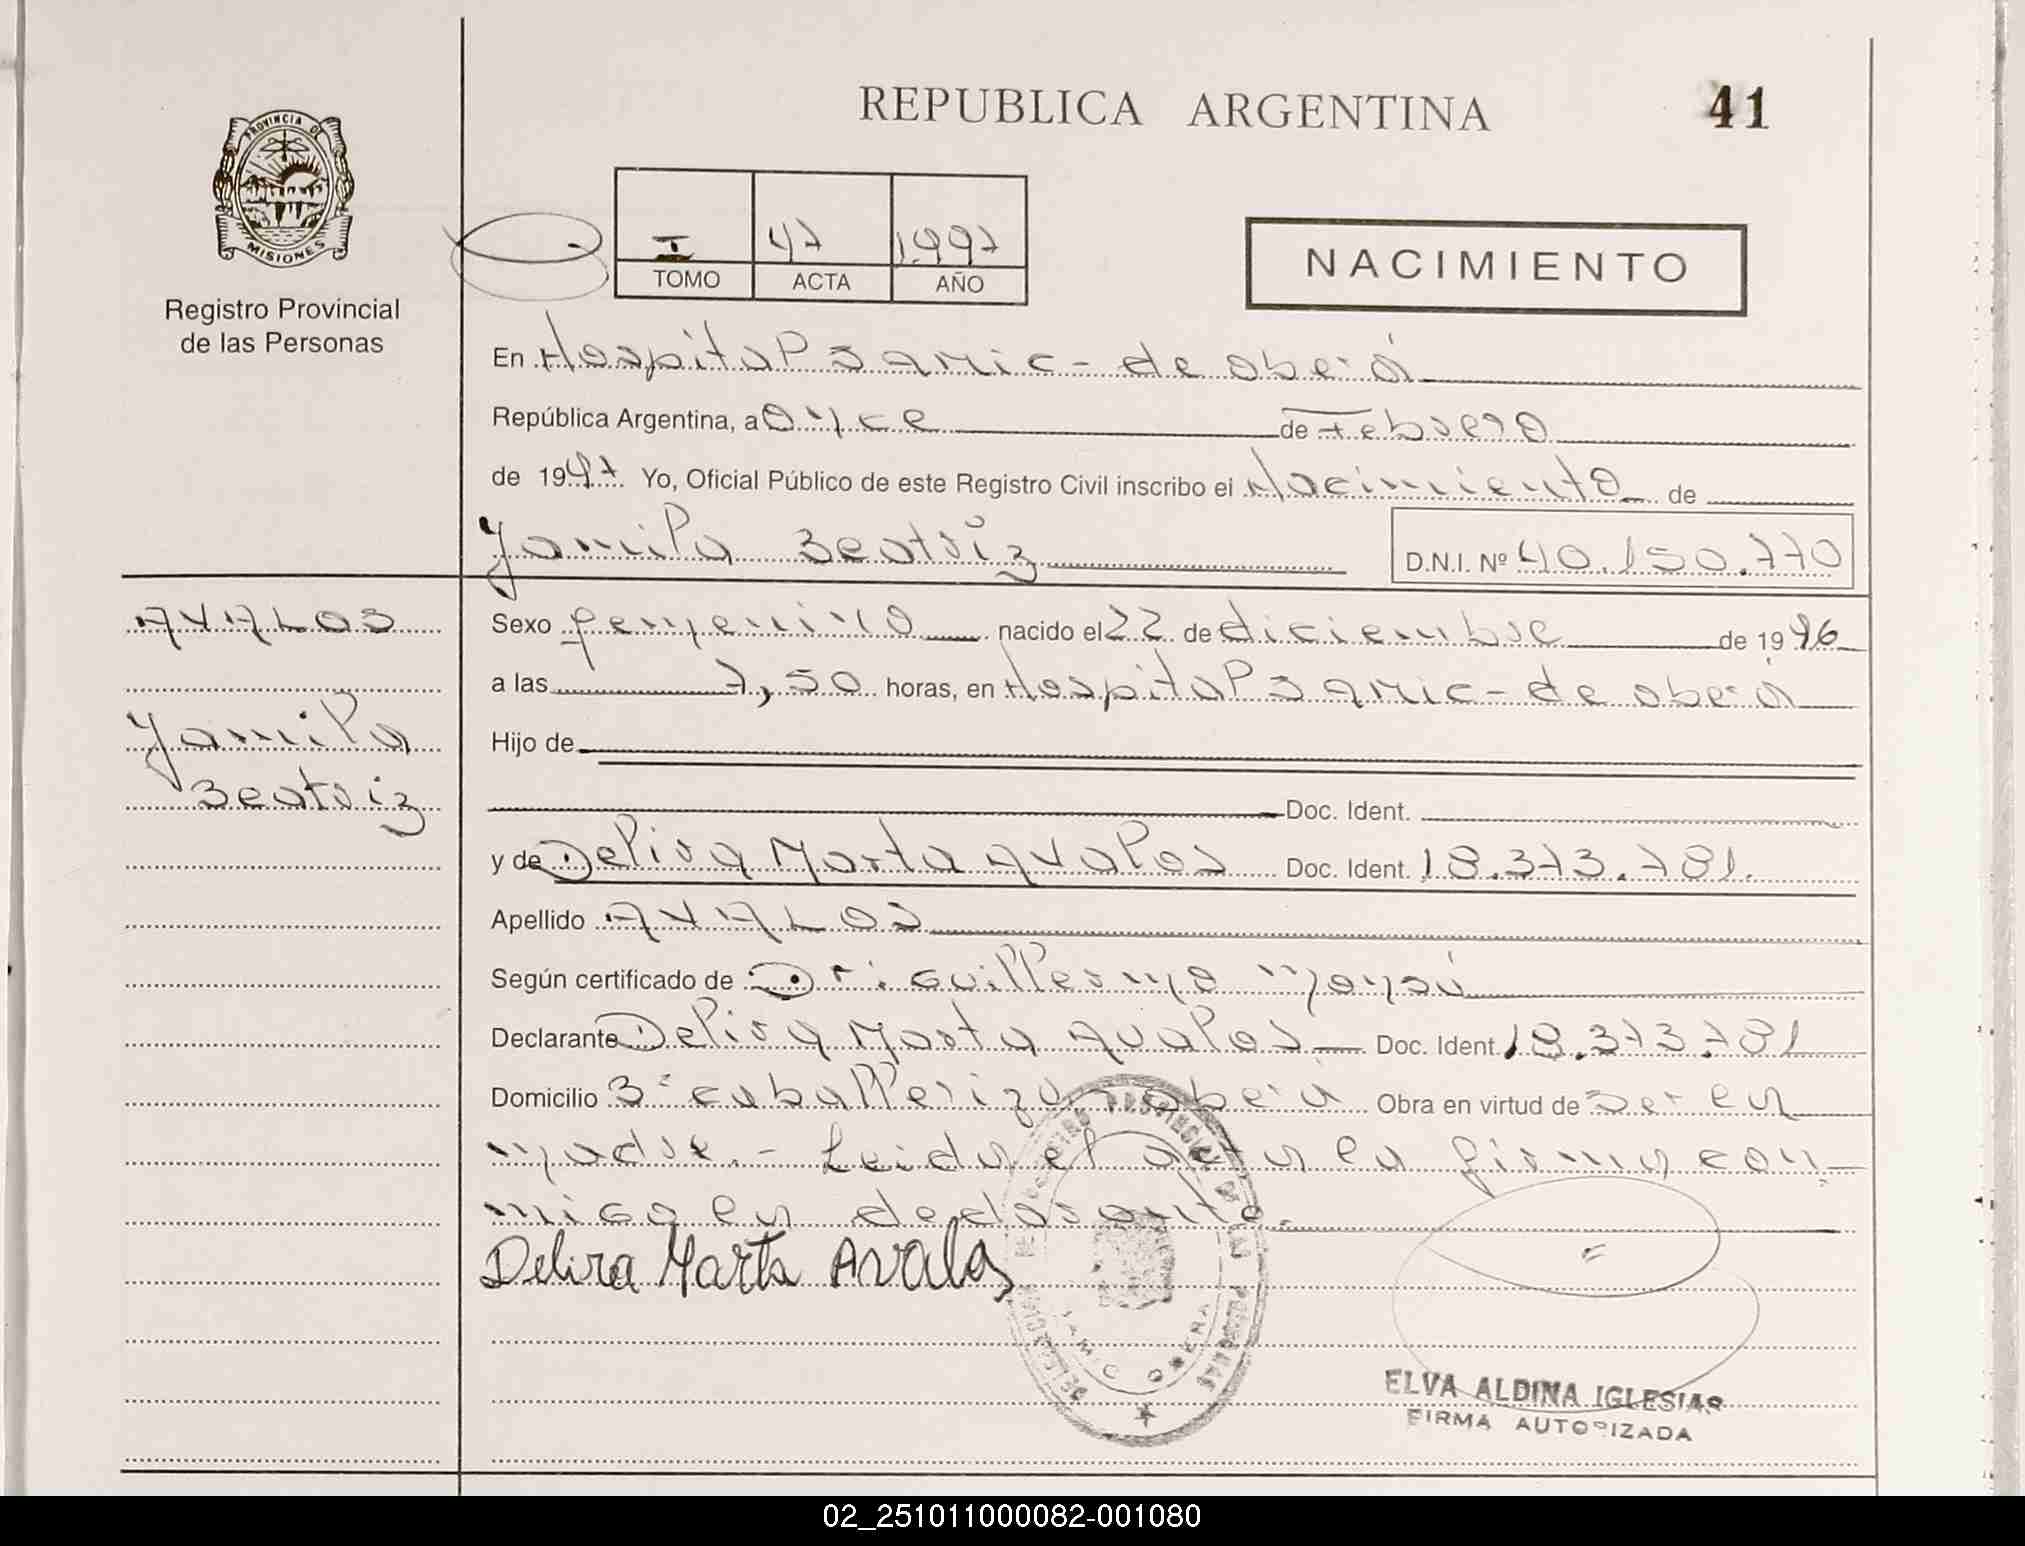 REPUBLICA ARGENTINA
41
PROVINCIA DE
MISIONES
Registro Provincial
de las Personas
I 47 1.997
TOMO ACTA AÑO
NACIMIENTO
En Hospital Samic - de oberá
República Argentina, a Once de Febrero
de 1997 Yo, Oficial Público de este Registro Civil inscribo el Nacimiento de
Yamila Beatriz D.N.I. Nº 40.150.770
AVALOS
Yamila
Beatriz
Sexo femenino nacido el 22 de diciembre de 1996
a las 7,50 horas, en Hospital Samic - de oberá
Hijo de
Doc. Ident.
y de Delira Marta Avalos Doc. Ident. 18.373.781.
Apellido AVALOS
Según certificado de Dr. Guillermo
Declarante Delira Marta Avalos Doc. Ident. 18.373.781
Domicilio oberá Obra en virtud de ser la
madre.- Leida el acta la firma con-
migo la declarante.
Delira Marta Avalos
ELVA ALDINA IGLESIAS
FIRMA AUTORIZADA
02_251011000082-001080